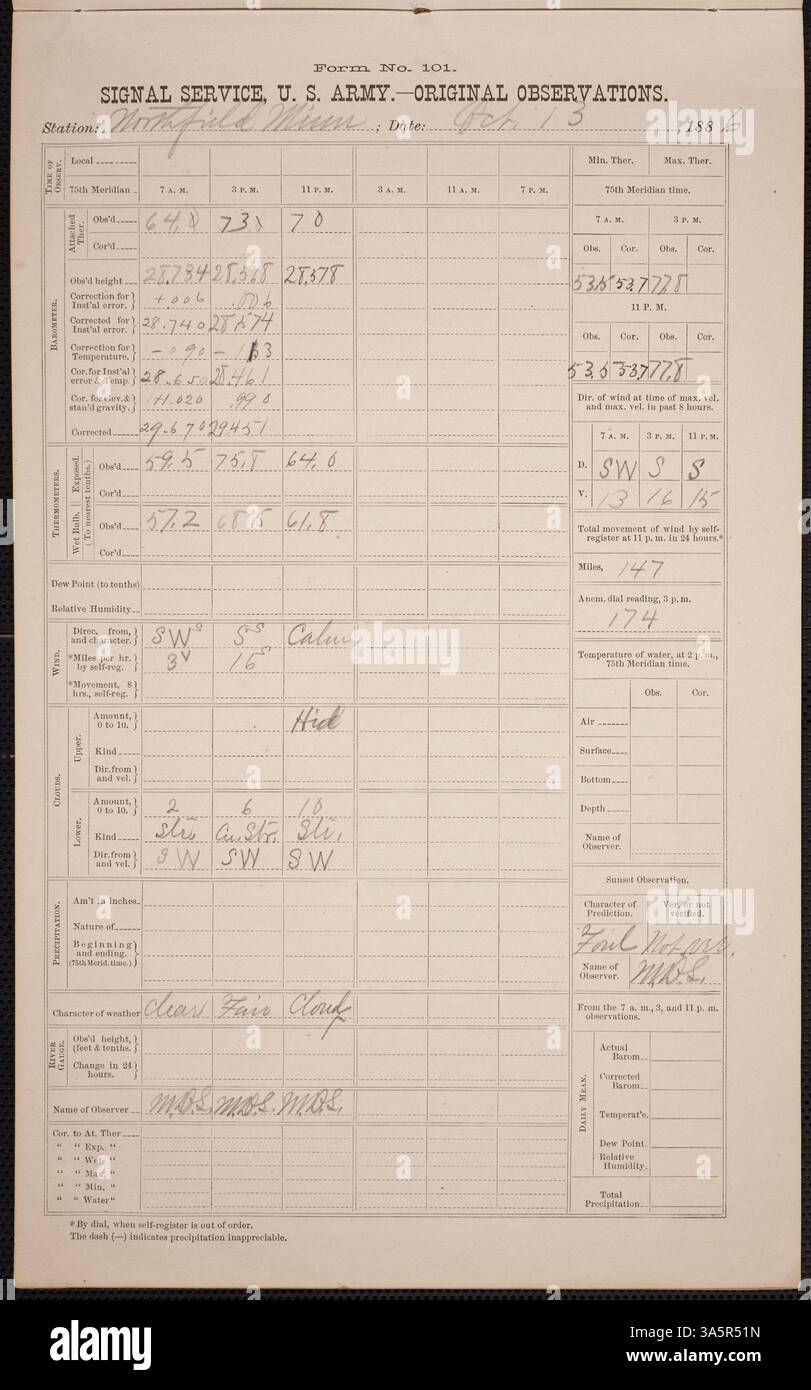 Form No. 101.
SIGNAL SERVICE, U. S. ARMY.—ORIGINAL OBSERVATIONS.
Station: Northfield Minn ; Date: Oct. 13 , 1886
TIME OF OBSERV.
Local
75th Meridian 7 A. M. 3 P. M. 11 P. M. 3 A. M. 11 A. M. 7 P. M.
BAROMETER.
Attached Ther.
Obs'd 64.0 730 70
Cor'd
Obs'd height 28,734 28,568 28,578
Correction for Inst'al error. +.006 .006
Corrected for Inst'al error. 28.740 28,574
Correction for Temperature. -090 -113
Cor. for Inst'al error & Temp. 28.650 28.461
Cor. for elev. & stan'd gravity. +1.020 .990
Corrected 29.670 29451
THERMOMETERS.
Exposed. (To nearest tenths.)
Obs'd 59.5 75.8 64.0
Cor'd
Wet Bulb.
Obs'd 57.2 68.5 61.8
Cor'd
Dew Point (to tenths)
Relative Humidity
WIND.
Direc. from, and character. SW s S s Calm
*Miles per hr. by self-reg. 3 v 16 s
*Movement, 8 hrs., self-reg.
CLOUDS.
Upper.
Amount, 0 to 10. Hid
Kind
Dir. from and vel.
Lower.
Amount, 0 to 10. 2 6 10
Kind Str. Cu. Str. Str.
Dir. from and vel. SW SW SW
PRECIPITATION.
Am't in inches
Nature of
Beginning and ending. (75th Merid. time.)
Character of weather Clear Fair Cloudy
RIVER GAUGE.
Obs'd height, (feet & tenths.)
Change in 24 hours.
Name of Observer M.D.S. M.D.S. M.D.S.
Cor. to At. Ther
“ “ Exp. “
“ “ Wet. “
“ “ Max. “
“ “ Min. “
“ “ Water “
*By dial, when self-register is out of order.
The dash (—) indicates precipitation inappreciable.
Min. Ther. Max. Ther.
75th Meridian time.
7 A. M. 3 P. M.
Obs. Cor. Obs. Cor.
53.5 53.7 77.8
11 P. M.
Obs. Cor. Obs. Cor.
53.5 53.7 77.8
Dir. of wind at time of max. vel. and max. vel. in past 8 hours.
7 A. M. 3 P. M. 11 P. M.
D. SW S S
V. 13 16 15
Total movement of wind by self-register at 11 p. m. in 24 hours.*
Miles, 147
Anem. dial reading, 3 p. m.
174
Temperature of water, at 2 p. m., 75th Meridian time.
Obs. Cor.
Air
Surface
Bottom
Depth
Name of Observer.
Sunset Observation.
Character of Prediction. Ver. or not verified.
Foul Not ver.
Name of Observer. M.D.S.
From the 7 a. m., 3, and 11 p. m. observations.
DAILY MEAN.
Actual Barom
Corrected Barom
Temperat'e.
Dew Point.
Relative Humidity
Total Precipitation
alamy
Image ID: 3A5R51N
www.alamy.com